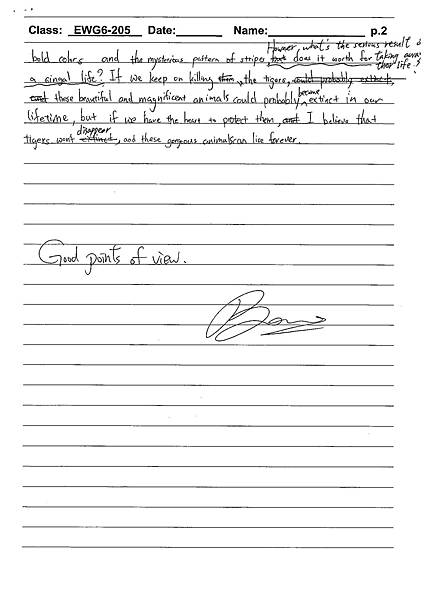 Class: EWG6-205 Date: Name: p.2
However, what's the serious result &
bold colors and the mysterious pattern of stripes that does it worth for taking away
their life?
a singal life? If we keep on killing them, the tigers, could probably extinct,
became
and these beautiful and magnificent animals could probably extinct in our
lifetime, but if we have the heart to protect them, and I believe that
disappear
tigers wont extinct, and these gorgeous animals can live forever.
Good points of view.